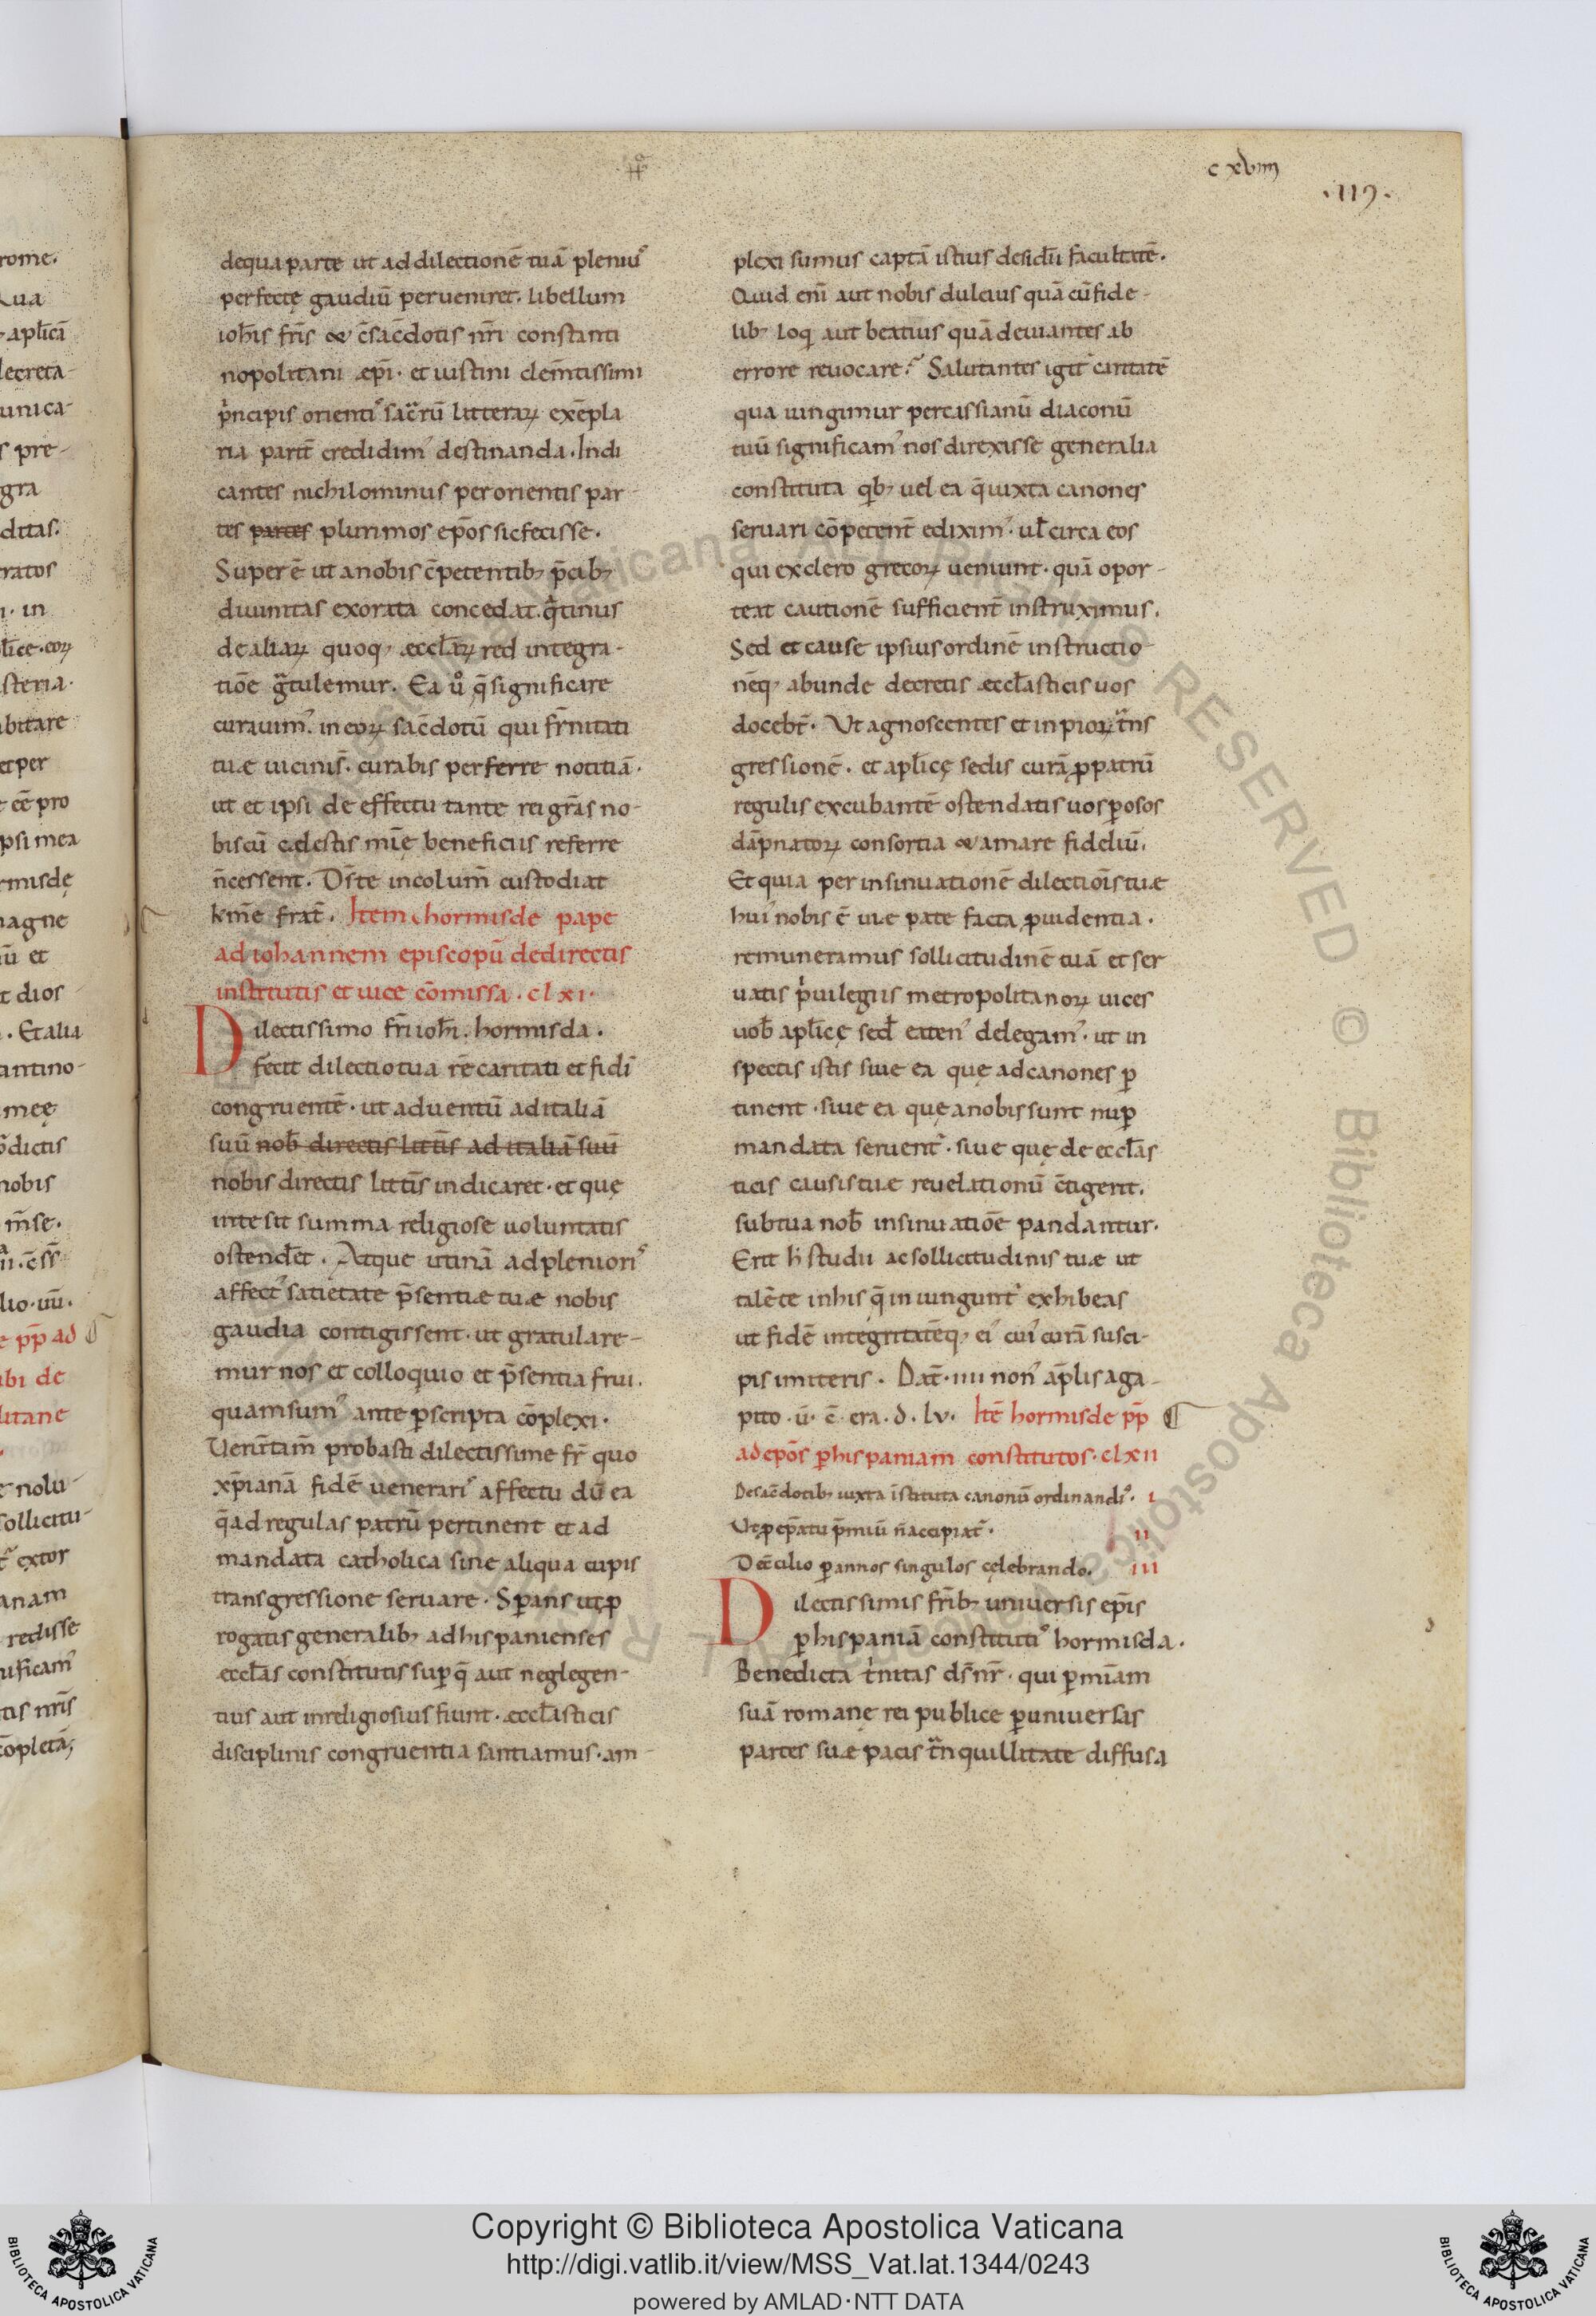 cxviiii
·119·
de qua parte ut ad dilectionē tuā pleniuꝰ
perfectę gaudiū perueniret. libellum
ioh̄is fr̄is & c̄sac̄dotis nr̄i constanti
nopolitani æpi̅· et iustini clem̄tissimi
pͥncipis orientiꝰ sac̄rū litteraꝝ exēpla
ria parit̄ credidimꝰ destinanda. Indi
cantes nichilominus per orientis par-
tes partes plurimos ep̄os sic fecisse.
Super ē ut a nobis c̄petentibꝫ p̄cibꝫ
diuinitas exorata concedat. qͣtinus
de aliaꝝ quoqꝫ æccl̄aꝝ redintegra-
tiōe gͣtulemur. Ea uͦ q̄ significare
curauimꝰ. in eoꝝ sac̄dotū qui fr̄nitati
tuæ uicinīs. curabis perferre notitiā.
ut et ipsi de effectu tante rei gr̄as no-
biscū cælestis mīę beneficiis referre
n̄ cessent. D̄s te incolum̄ custodiat
km̄e frat̄. Item hormisde pape
ad iohannem episcopū de directis
institutis et uice cōmissa. clxi.
Dilectissimo fr̄i ioh̄i. hormisda.
fecit dilectio tua rē caritati et fidī
congruentē. ut aduentū ad italiā
suū nob̄ directis litt̄is ad italiā suū
nobis directis litt̄is indicaret. et quę
in te sit summa religiose uoluntatis
ostendet̄. Atque utinā ad plenioriꝰ
affectꝰ satietate p̄sentiæ tuæ nobis
gaudia contigissent. ut gratulare-
mur nos et colloquio et p̄sentia frui.
quam sumꝰ ante ꝑscripta cōplexi.
Uerūtam̄ probasti dilectissime fr̄ quo
xp̄ianā fidē uenerariꝰ affectu dū ea
q̄ ad regulas patrū pertinent et ad
mandata catholica sine aliqua cupis
transgressione seruare. Sꝑans ut ꝓ
rogatis generalibꝫ ad hispanienses
æccl̄as constitutis suꝑ q̄ aut neglegen-
tius aut inreligiosius fiunt. æccl̄asticis
disciplinis congruentia santiamus. am-
plexi sumus captā istius desid̄ii facultatē.
Quid eni̅ aut nobis dulcius quā cū fide-
libꝫ loqi aut beatius quā deuiantes ab
errore reuocare? Salutantes igitͬ caritatē
qua iungimur per cassianū diaconū
tuū significamꝰ nos direxisse generalia
constituta qͥbꝫ uel ea q̄ iuxta canones
seruari cōpetent̄ ediximꝰ. ul̄ circa eos
qui ex clero grecoꝝ ueniunt. quā opor-
teat cautionē sufficient̄ instruximus.
Sed et cause ipsius ordinē instructio-
nēqꝫ abunde decretis æccl̄asticis uos
docebt̄. Ut agnoscentes et in prioꝝ tͣns
gressionē. et apl̄icę sedis curā ꝓ patrū
regulis excubantē ostendatis uos ꝑosos
dāpnatoꝝ consortia & amare fideliū.
Et quia per insinuationē dilectiōis tuæ
huiꝰ nobis ē uiæ patefacta ꝓuidentia.
remuneramus sollicitudinē tuā et ser
uatis pͥuilegiis metropolitanoꝝ uices
uob̄ apl̄icę sed̄ eatenꝰ delegamꝰ. ut in
spectis istis siue ea quę ad canones ꝑ
tinent. siue ea quę a nobis sunt nuꝑ
mandata seruentͬ. siue quę de eccl̄as
ticis causis tuæ reuelationū c̄tigerit.
sub tua nob̄ insinuatiōe pandantur.
Erit h̄ studii ac sollicitudinis tuæ ut
talē te in his q̄ iniungunt̄ exhibeas
ut fidē integritatēqꝫ eiꝰ cuiꝰ curā susci-
pis imiteris. Dat̄. iiii nonꝰ ap̄lis aga-
pito. u̅. c̅. era. d. lv. Itē hormisde pp̄
ad ep̄os ꝑ hispaniam constitutos. clxii
De sac̄dotibꝫ iuxta īstituta canonū ordinandiꝰ. i
Ut ꝓ ep̄atu p̄miū n̄ accipiatͬ. ii
De c̄cilio ꝑ annos singulos cęlebrando. iii
Dilectissimis fr̄ibꝫ uniuersis ep̄is
ꝑ hispaniā constitutiꝰ hormisda.
Benedicta tͥnitas d̄s nr̄. qui ꝑ mīam
suā romanę rei publice ꝑ uniuersas
partes suæ pacis tͣnquillitate diffusa
Copyright © Biblioteca Apostolica Vaticana
http://digi.vatlib.it/view/MSS_Vat.lat.1344/0243
powered by AMLAD·NTT DATA